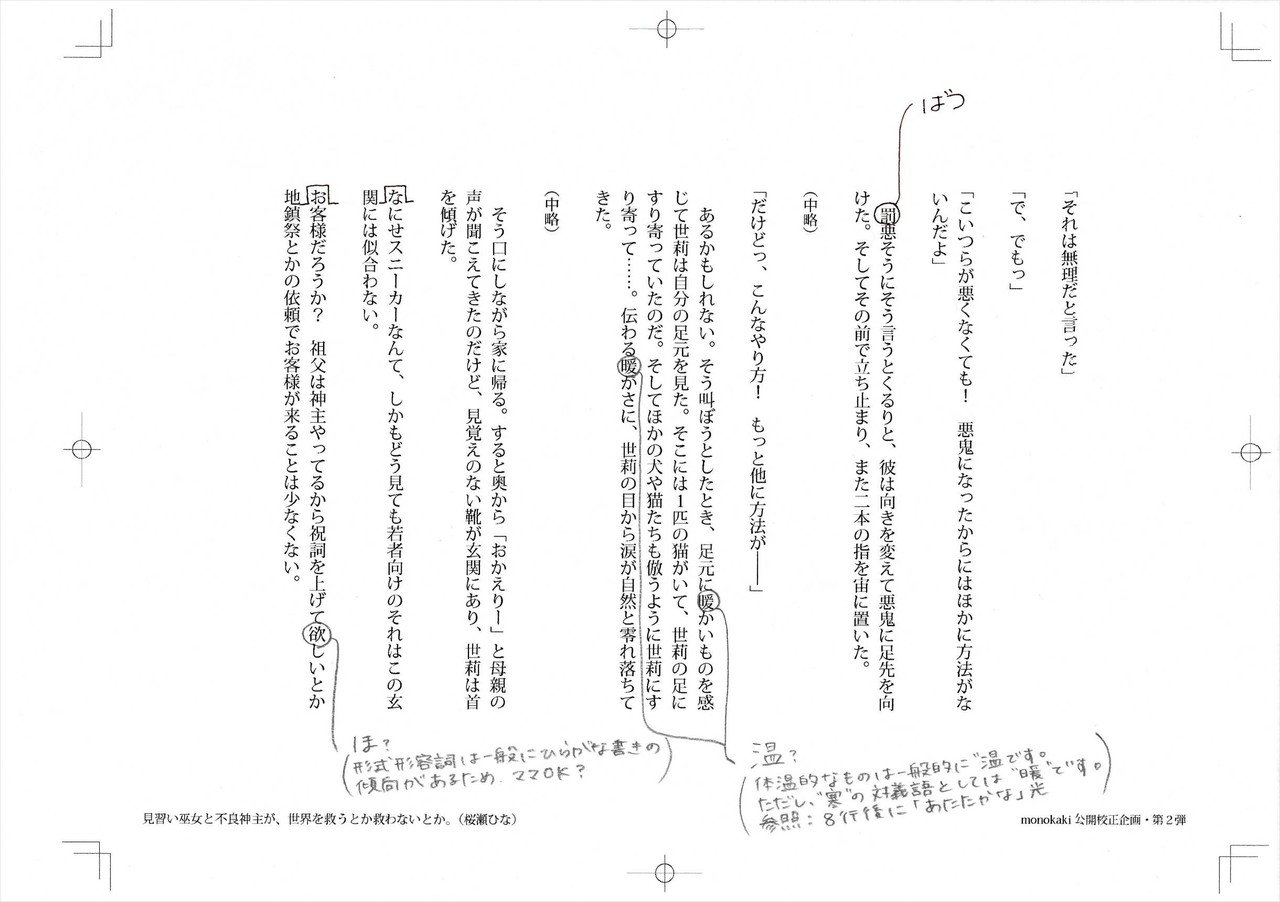 ばつ
「それは無理だと言った」
「で、でもっ」
「こいつらが悪くなくても！　悪鬼になったからにはほかに方法がな
いんだよ」
罰悪そうにそう言うとくるりと、彼は向きを変えて悪鬼に足先を向
けた。そしてその前で立ち止まり、また二本の指を宙に置いた。
（中略）
「だけどっ、こんなやり方！　もっと他に方法が――」
あるかもしれない。そう叫ぼうとしたとき、足元に暖かいものを感
じて世莉は自分の足元を見た。そこには１匹の猫がいて、世莉の足に
すり寄っていたのだ。そしてほかの犬や猫たちも倣うように世莉にす
り寄って……。伝わる暖かさに、世莉の目から涙が自然と零れ落ちて
きた。
（中略）
そう口にしながら家に帰る。すると奥から「おかえりー」と母親の
声が聞こえてきたのだけど、見覚えのない靴が玄関にあり、世莉は首
を傾げた。
なにせスニーカーなんて、しかもどう見ても若者向けのそれはこの玄
関には似合わない。
お客様だろうか？　祖父は神主やってるから祝詞を上げて欲しいとか
地鎮祭とかの依頼でお客様が来ることは少なくない。
温？
（体温的なものは一般的に“温”です。
ただし、“寒”の対義語としては“暖”です。
参照：８行後に「あたたかな」光）
ほ？
（形式形容詞は一般にひらがな書きの
傾向があるため、ママOK？）
見習い巫女と不良神主が、世界を救うとか救わないとか。（桜瀬ひな）
monokaki 公開校正企画・第２弾